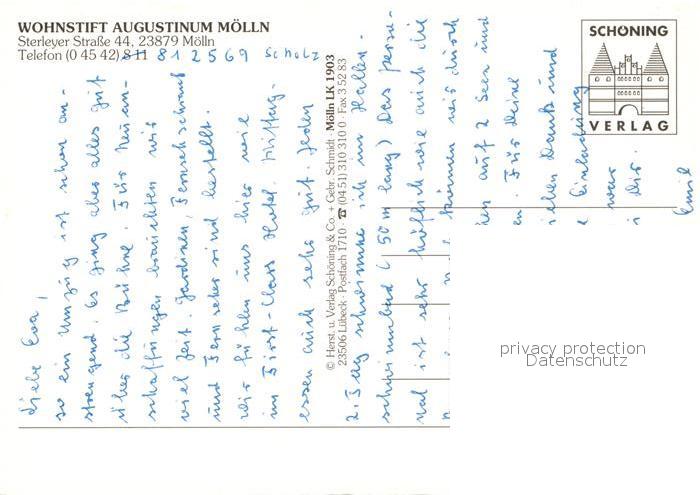 WOHNSTIFT AUGUSTINUM MÖLLN
Sterleyer Straße 44, 23879 Mölln
Telefon (0 45 42) 8 11 812569 Scholz
SCHÖNING
VERLAG
© Herst. u. Verlag Schöning & Co. + Gebr. Schmidt Mölln LK 1903
23506 Lübeck · Postfach 1710 · ☎ (04 51) 310 310 0 · Fax 3 52 83
Liebe Eva,
so ein Umzug ist schon an-
strengend. Es ging aber alles gut
über die Bühne. Für Neuan-
schaffungen brauchten wir
viel Zeit. Gardinen, Fernsehschrank
und Fernseher sind bestellt.
Wir fühlen uns hier wie
im First-Class Hotel. Mittag-
essen auch sehr gut. Jeden
2. Tag schwimme ich im Hallen-
schwimmbad (50 m lang) Das Perso-
nal ist sehr höflich wie auch die
können wir durch
auf 2 Seen und
Für Deine
Dank und
Einladung
war
Dir.
privacy protection
Datenschutz